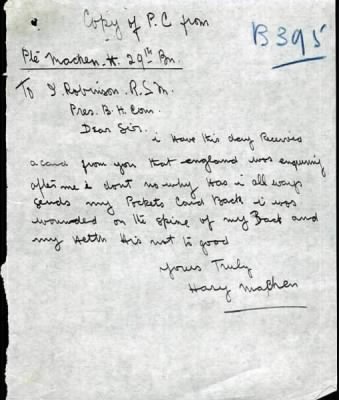 Copy of P.C from
B395
Pte Machen. H. 29th Bn.
To J Robinson. R.S.M.
Pres. B.H. Com.
Dear Sir.
i Have this day Received
a card from you that england was enquiring
after me i dont no why Has i all ways
sends my Pockets Card Back i was
wounded on the spine of my Back and
my Helth His not to good
yours Truly
Hary Machen